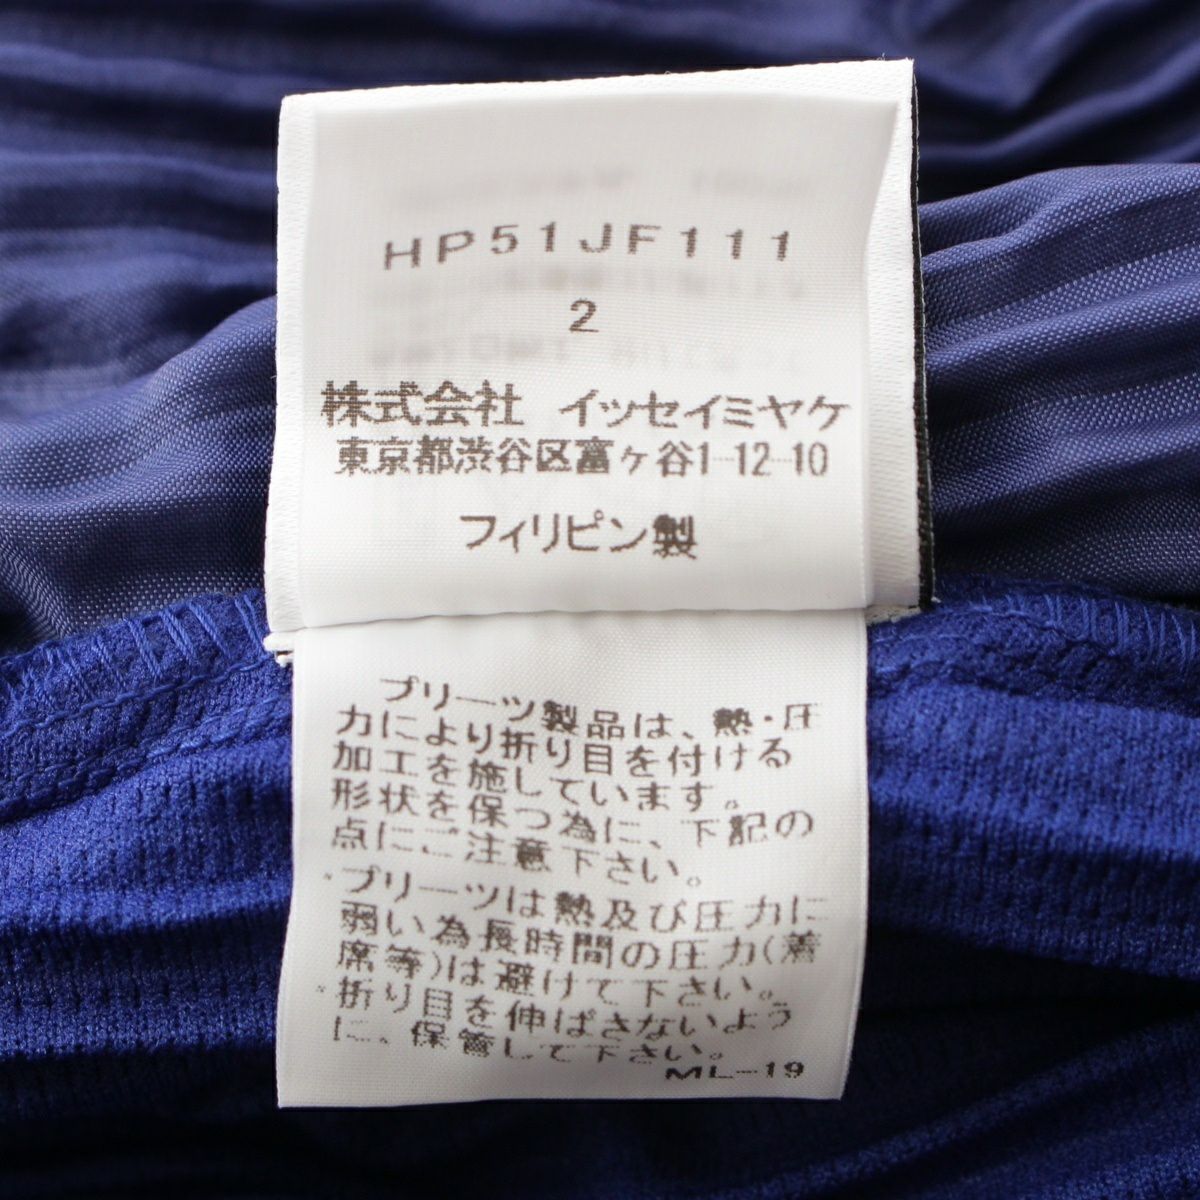 HP51JF111
2
株式会社 イッセイミヤケ
東京都渋谷区富ヶ谷1-12-10
フィリピン製
プリーツ製品は、熱・圧
力により折り目を付ける
加工を施しています。
形状を保つ為に、下記の
点にご注意下さい。
・プリーツは熱及び圧力に
弱い為長時間の圧力(着
席等)は避けて下さい。
・折り目を伸ばさないよう
に、保管して下さい。
ML-19